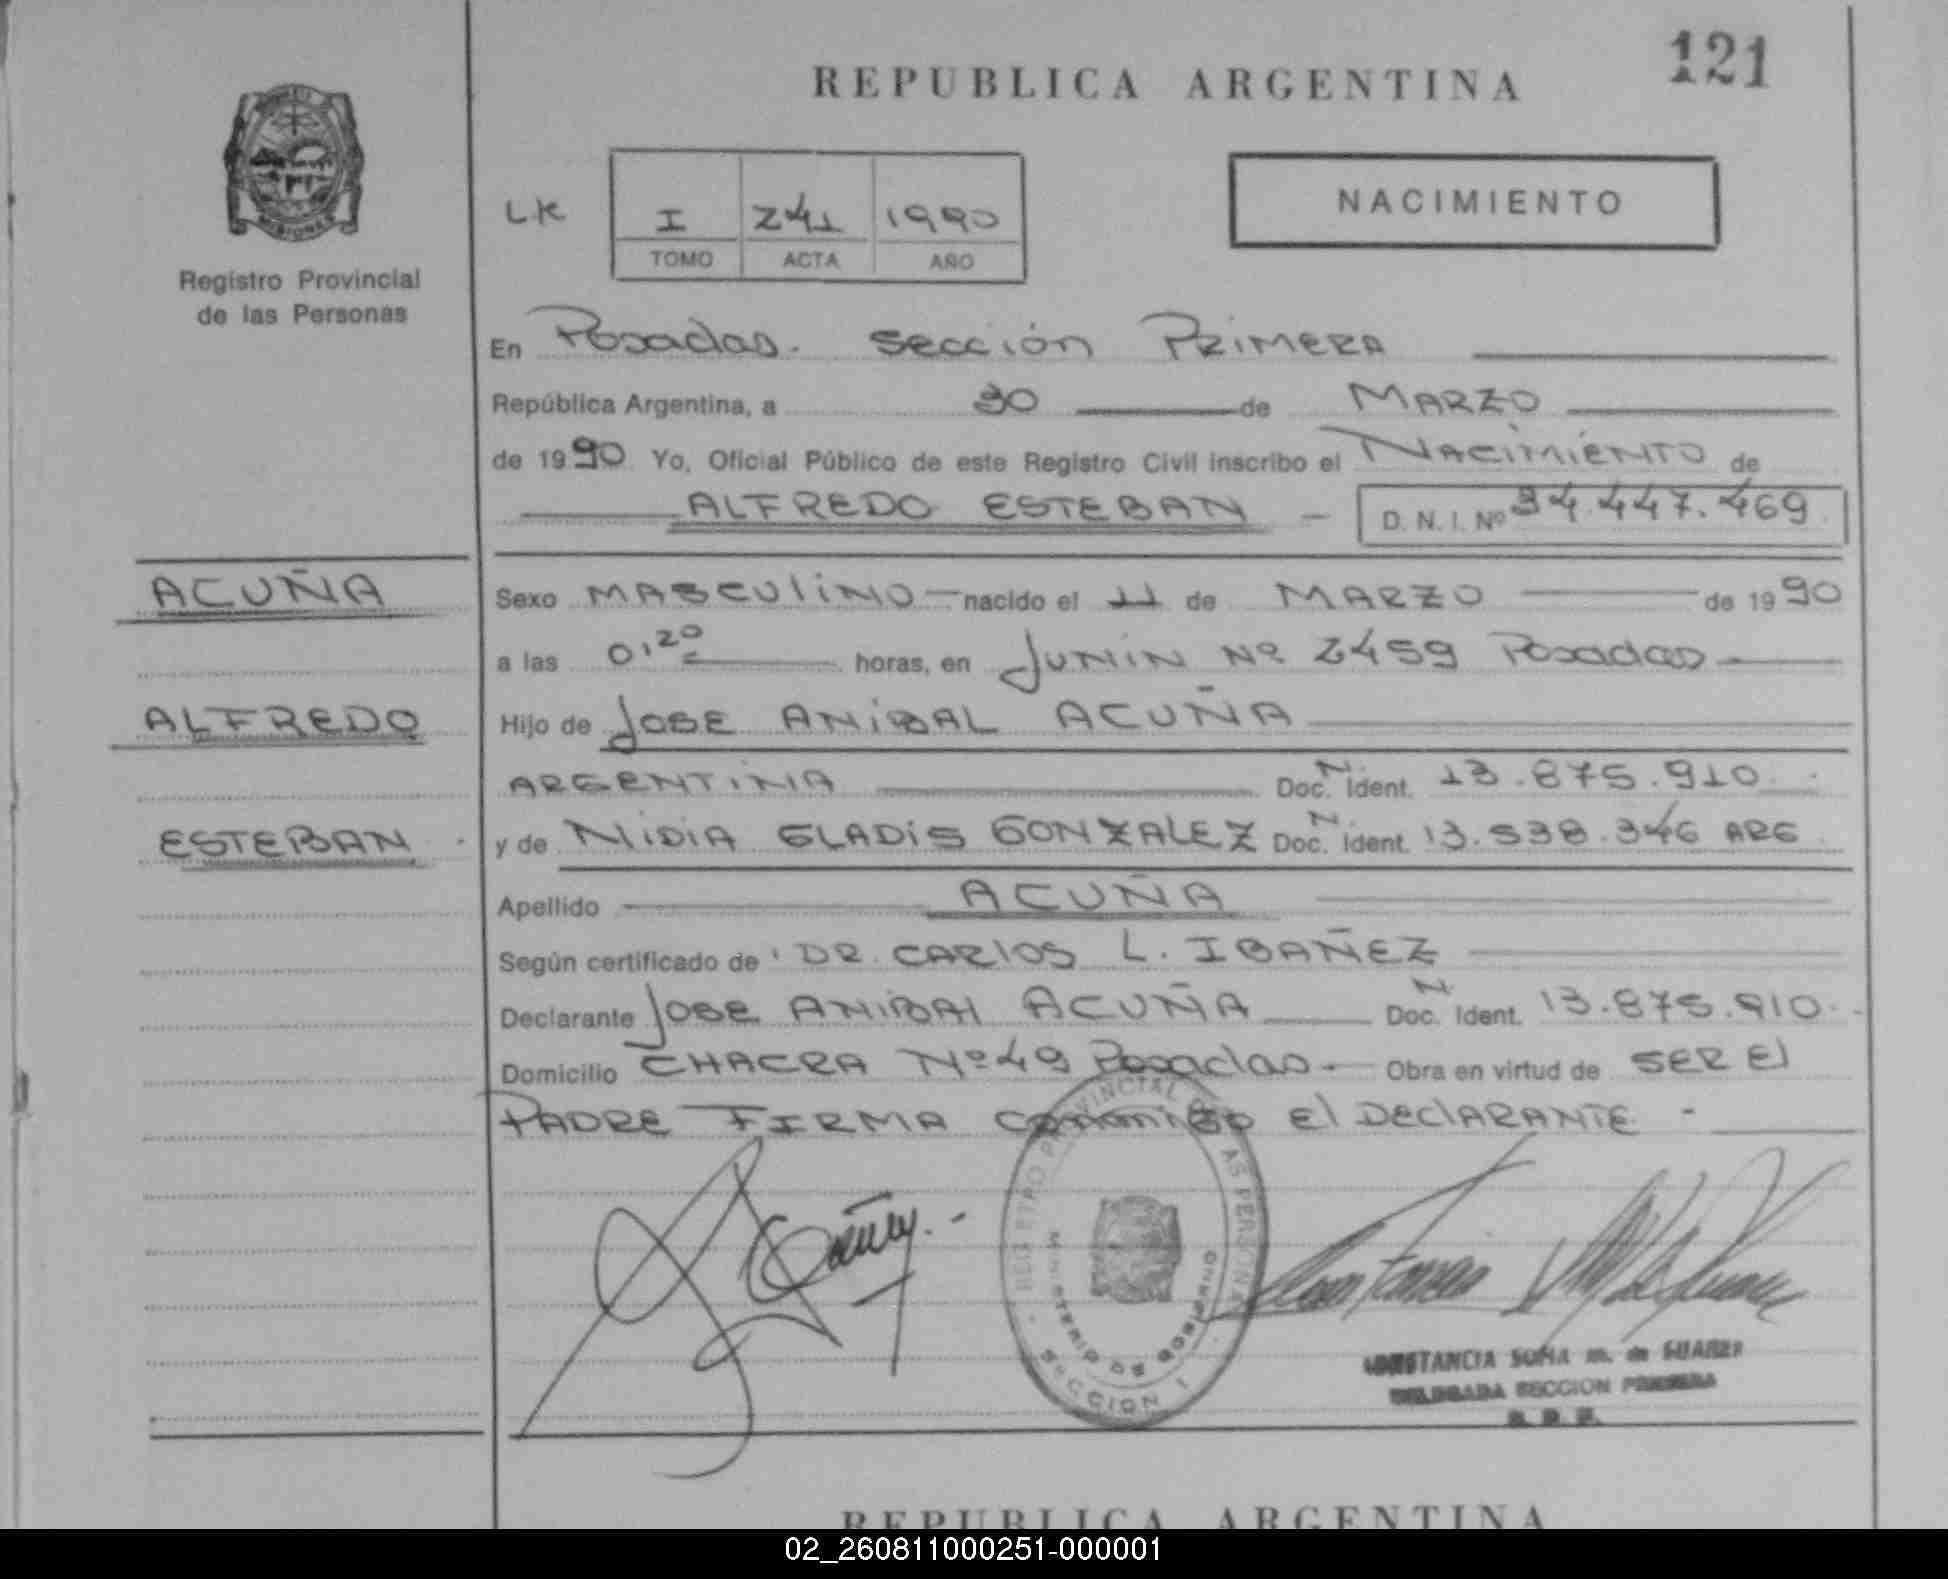 121
REPUBLICA ARGENTINA
MISIONES
Registro Provincial
de las Personas
LK
I 241 1990
TOMO ACTA AÑO
NACIMIENTO
En Posadas. Sección PRIMERA
República Argentina, a 30 de MARZO
de 1990 Yo, Oficial Público de este Registro Civil inscribo el NACIMIENTO de
ALFREDO ESTEBAN - D. N. I. Nº 34.447.469
ACUÑA
ALFREDO
ESTEBAN
Sexo MASCULINO nacido el 11 de MARZO de 1990
a las 0,20 horas, en JUNIN Nº 2459 Posadas
Hijo de JOSE ANIBAL ACUÑA
ARGENTINA Doc. N. Ident. 13.875.910
y de NIDIA GLADIS GONZALEZ Doc. N. Ident. 13.538.346 ARG
Apellido ACUÑA
Según certificado de DR. CARLOS L. IBAÑEZ
Declarante JOSE ANIBAL ACUÑA Doc. N. Ident. 13.875.910
Domicilio CHACRA Nº 49 Posadas Obra en virtud de SER El
PADRE FIRMA conmigo El DECLARANTE -
REGISTRO PROVINCIAL DE LAS PERSONAS
MINISTERIO DE GOBIERNO
SECCION 1
CONSTANCIA SOÑA m. de
DELEGADA SECCION PRIMERA
REPUBLICA ARGENTINA
02_260811000251-000001